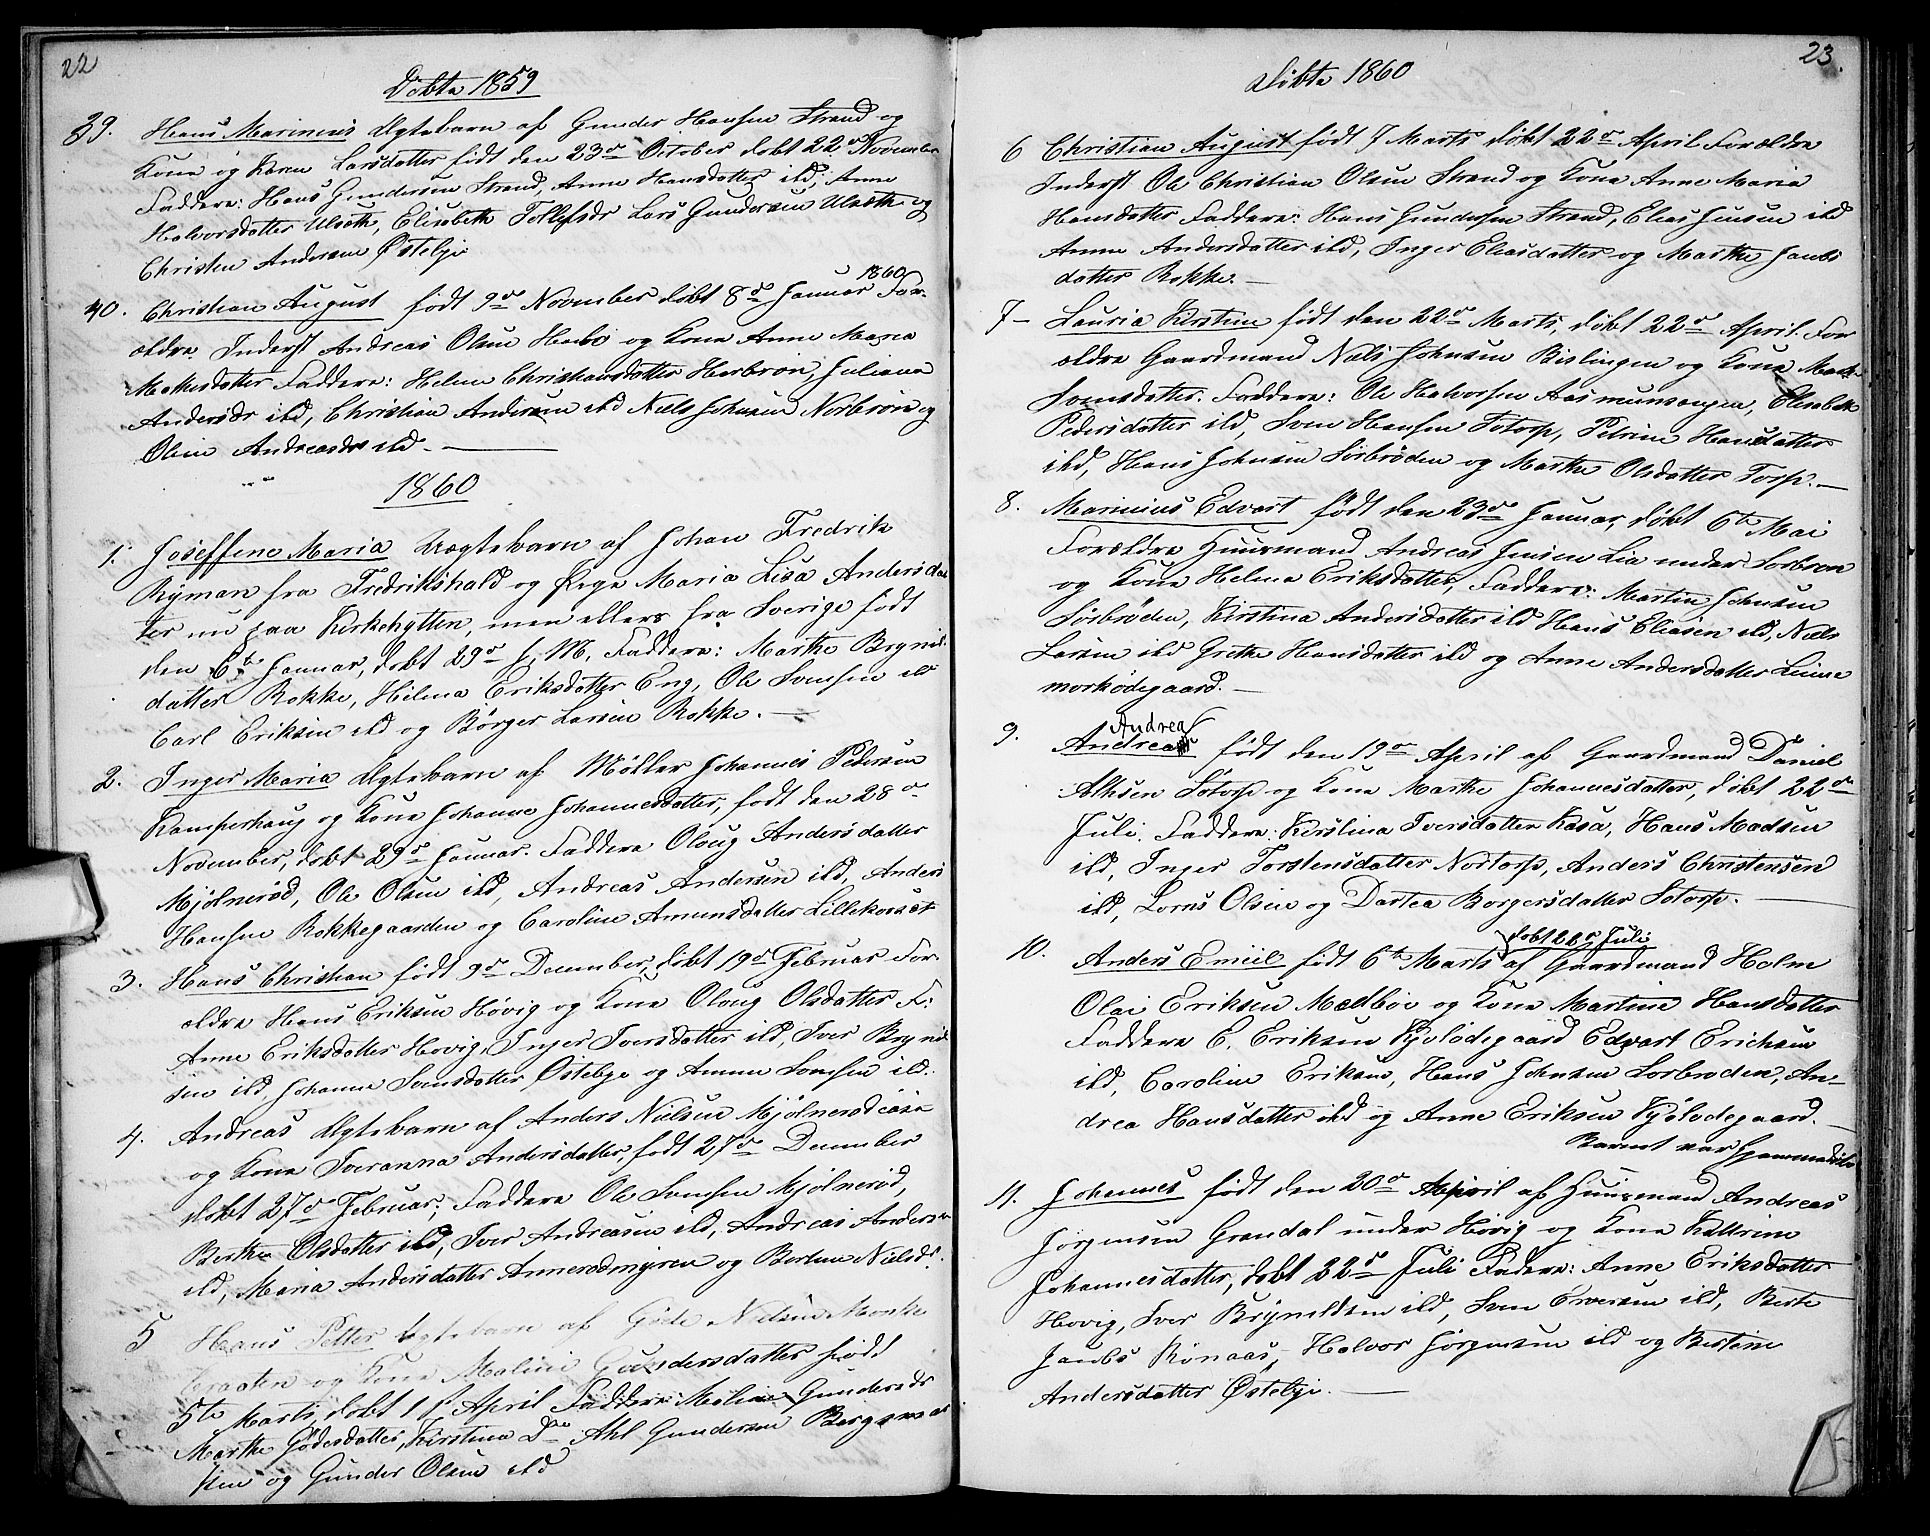 22
Døbte 1859
39. Hans Marinius Ægtebarn af Gunder Hansen Strand og
Kone og Karen Larsdatter født den 23de October døbt 22de November
Faddere: Hans Gundersen Strand, Anne Hansdatter ibd, Anne
Halvorsdatter Ulsæth, Elisabeth Tollefsdr Lars Gundersen Ulsæth og
Christen Andersen Østebye
40. Christian August født 9de November døbt 8de Januar 1860 For-
ældre Inderst Andreas Olsen Hærbo og Kone Anne Maria
datter Faddere: Helene Christiansdatter Herbrøn, Juliana
Andersdr ibd, Christian Andersen ibd Niels Johnsen Norbrøn og
Oline Andreasdr ibd.
1860
1. Joseffene Maria Uægtebarn af Johan Fredrik
Ryman fra Fredrikshald og Pige Maria Lisa Andersdat
ter nu paa Kirkehytten, men ellers fra Sverige født
den 6te Januar, døbt 29de s. M. Faddere: Marthe Brynild
datter Rokke, Helena Eriksdatter Eng, Ole Svensen ibd
Carl Eriksen ibd og Børger Larsen Rokke.
2. Inger Maria Ægtebarn af Møller Johannes Pedersen
Kamperhaug og Kone Johanne Johannesdatter, født den 28de
November, døbt 29de Januar. Faddere Oloug Andersdatter
Mjølnerød, Ole Olsen ibd, Andreas Andersen ibd, Anders
Hansen Rokkegaarden og Caroline Amundsdatter Lillekorset
3. Hans Christian født 9de December, døbt 19de Februar For-
ældre Hans Eriksen Høvig og Kone Oloug Olsdatter F:
Anne Eriksdatter Hovig, Inger Iversdatter ibd, Iver Brynild
sen ibd, Johanne Svensdatter Østebye og Amund Svensen ibd.
4. Andreas Ægtebarn af Anders Nielsen Mjølnerødeie
og Kone Iveranna Andersdatter, født 27de December
døbt 27de Februar, Faddere Ole Svensen Mjølnerød,
Berthe Olsdatter ibd, Iver Andreasen ibd, Andreas Andersen
ibd, Maria Andersdatter Annerødmyren og Bertine Nielsdr.
5 Hans Petter Ægtebarn af Gøde Nielsen Monke
braaten og Kone Maline Gundersdatter født
5te Marts, døbt 1ste April Faddere: Meline Gundersdr
Marthe Gødesdatter, Kirstina Do Ahl Gundersen Bergsma
og Gunder Olsen ibd
23.
Døbte 1860
6 Christian August født 7 Marts døbt 22de April Forældre
Inderst Ole Christian Olsen Strand og Kone Anne Maria
Hansdatter Faddere: Hans Gundersen Strand, Elias Jensen ibd
Anne Andersdatter ibd, Inger Eliasdatter og Marthe Jacobs
datter Rokke.
7 Lauria Kirstine født den 22de Marts, døbt 22de April. For
ældre Gaardmand Niels Johnsen Bislingen og Kone Marthe
Svensdatter. Faddere: Ole Halvorsen Aasmunsengen, Elisabeth
Pedersdatter ibd, Sven Hansen Totorp, Petrine Hansdatter
ibd, Hans Johnsen Sørbrøden og Marthe Olsdatter Torp.
8. Marinius Edvart født den 23de Januar, døbt 6te Mai
Forældre Huusmand Andreas Jensen Lia under Sorbrøn
og Kone Helena Eriksdatter, Faddere: Martin Johnsen
Sørbrøden, Kirstina Andersdatter ibd Hans Eliasen ibd, Niels
Larsen ibd Grethe Hansdatter ibd og Anne Andersdatter Lunne
morkødegaard.
Andrea
9. Andrea født den 19de April af Gaardmand Daniel
Alksen Sotorp og Kone Marthe Johannesdatter, døbt 22de
Juli. Faddere: Kirstina Iversdatter Kasa, Hans Madsen
ibd, Inger Torstensdatter Nortorp, Anders Christensen
ibd, Lorns Olsen og Dortea Borgersdatter Sotorp.
døbt 22de Juli
10. Anders Emiil født 6te Marts af Gaardmand Holm
Olai Eriksen Mælbøe og Kone Martine Hansdatter
Faddere E. Eriksen Kjølødegaard Edvart Erichsen
ibd, Caroline Eriksen, Hans Johnsen Sorbroden, An-
drea Hansdatter ibd og Anne Eriksen Kjølodegaard.
Barnet var hjemmedøbt
11. Johannes født den 20de April af Huusmand Andreas
Jørgensen Grandal under Høvig og Kone Kathrine
Johannesdatter, døbt 22de Juli Fadere: Anne Eriksdatter
Hovig, Iver Brynildsen ibd, Sven Iversen ibd, Berte
Jacobs Rønaas, Halvor Jørgensen ibd og Bertine
Andersdatter Østebye.